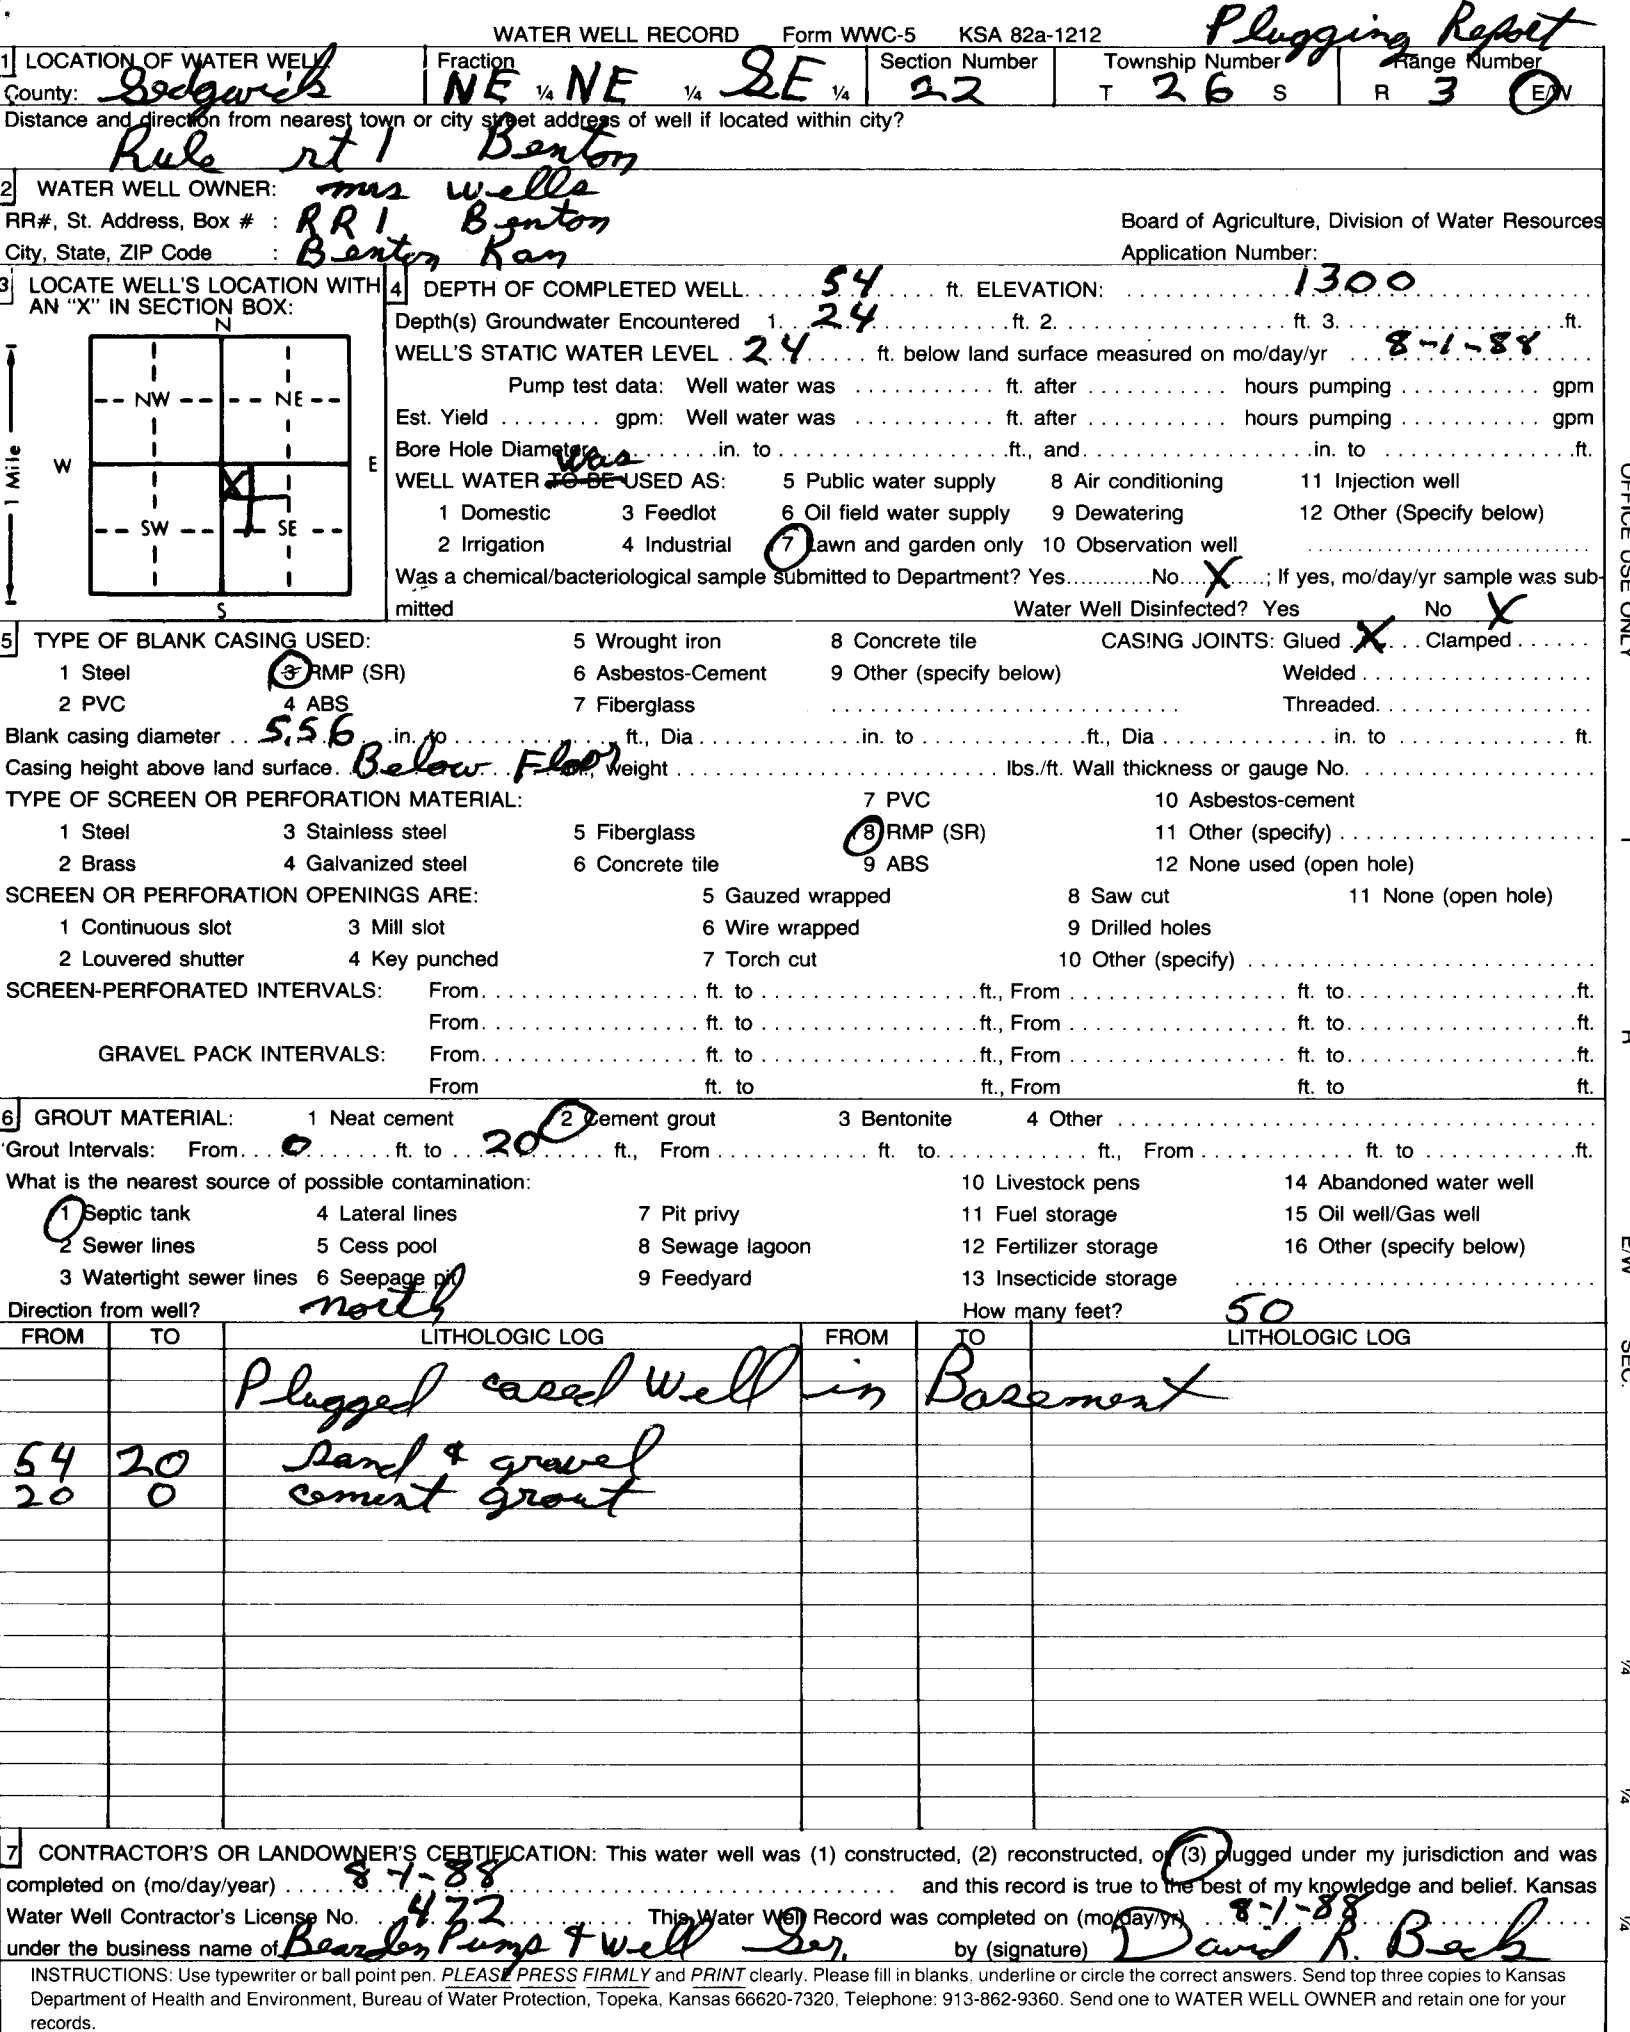 Plugging Report
WATER WELL RECORD Form WWC-5 KSA 82a-1212
1 LOCATION OF WATER WELL Fraction Section Number Township Number Range Number
County: Sedgwick NE ¼ NE ¼ SE ¼ 22 T 26 S R 3 E/W
Distance and direction from nearest town or city street address of well if located within city?
Rule rt 1 Benton
2 WATER WELL OWNER: mrs wells
RR#, St. Address, Box # : RR 1 Benton Board of Agriculture, Division of Water Resources
City, State, ZIP Code : Benton Kan Application Number:
3 LOCATE WELL'S LOCATION WITH AN "X" IN SECTION BOX:
N
NW NE
W E
X
SW SE
S
1 Mile
4 DEPTH OF COMPLETED WELL 54 ft. ELEVATION: 1300
Depth(s) Groundwater Encountered 1. 24 ft. 2. ft. 3. ft.
WELL'S STATIC WATER LEVEL 24 ft. below land surface measured on mo/day/yr 8-1-88
Pump test data: Well water was ft. after hours pumping gpm
Est. Yield gpm: Well water was ft. after hours pumping gpm
Bore Hole Diameter in. to ft., and in. to ft.
was
WELL WATER TO BE USED AS: 5 Public water supply 8 Air conditioning 11 Injection well
1 Domestic 3 Feedlot 6 Oil field water supply 9 Dewatering 12 Other (Specify below)
2 Irrigation 4 Industrial 7 Lawn and garden only 10 Observation well
Was a chemical/bacteriological sample submitted to Department? Yes No X ; If yes, mo/day/yr sample was sub-
mitted Water Well Disinfected? Yes No X
5 TYPE OF BLANK CASING USED: 5 Wrought iron 8 Concrete tile CASING JOINTS: Glued X Clamped
1 Steel 3 RMP (SR) 6 Asbestos-Cement 9 Other (specify below) Welded
2 PVC 4 ABS 7 Fiberglass Threaded
Blank casing diameter 5.56 in. to ft., Dia in. to ft., Dia in. to ft.
Casing height above land surface Below Floor, weight lbs./ft. Wall thickness or gauge No.
TYPE OF SCREEN OR PERFORATION MATERIAL: 7 PVC 10 Asbestos-cement
1 Steel 3 Stainless steel 5 Fiberglass 8 RMP (SR) 11 Other (specify)
2 Brass 4 Galvanized steel 6 Concrete tile 9 ABS 12 None used (open hole)
SCREEN OR PERFORATION OPENINGS ARE: 5 Gauzed wrapped 8 Saw cut 11 None (open hole)
1 Continuous slot 3 Mill slot 6 Wire wrapped 9 Drilled holes
2 Louvered shutter 4 Key punched 7 Torch cut 10 Other (specify)
SCREEN-PERFORATED INTERVALS: From ft. to ft., From ft. to ft.
From ft. to ft., From ft. to ft.
GRAVEL PACK INTERVALS: From ft. to ft., From ft. to ft.
From ft. to ft., From ft. to ft.
6 GROUT MATERIAL: 1 Neat cement 2 Cement grout 3 Bentonite 4 Other
Grout Intervals: From 0 ft. to 20 ft., From ft. to ft., From ft. to ft.
What is the nearest source of possible contamination: 10 Livestock pens 14 Abandoned water well
1 Septic tank 4 Lateral lines 7 Pit privy 11 Fuel storage 15 Oil well/Gas well
2 Sewer lines 5 Cess pool 8 Sewage lagoon 12 Fertilizer storage 16 Other (specify below)
3 Watertight sewer lines 6 Seepage pit 9 Feedyard 13 Insecticide storage
Direction from well? north How many feet? 50
FROM TO LITHOLOGIC LOG FROM TO LITHOLOGIC LOG
Plugged cased Well in Basement
54 20 sand & gravel
20 0 cement grout
7 CONTRACTOR'S OR LANDOWNER'S CERTIFICATION: This water well was (1) constructed, (2) reconstructed, or (3) plugged under my jurisdiction and was
completed on (mo/day/year) 8-1-88 and this record is true to the best of my knowledge and belief. Kansas
Water Well Contractor's License No. 472 This Water Well Record was completed on (mo/day/yr) 8-1-88
under the business name of Bearden Pump & Well Ser. by (signature) David R. Beck
INSTRUCTIONS: Use typewriter or ball point pen. PLEASE PRESS FIRMLY and PRINT clearly. Please fill in blanks, underline or circle the correct answers. Send top three copies to Kansas
Department of Health and Environment, Bureau of Water Protection, Topeka, Kansas 66620-7320, Telephone: 913-862-9360. Send one to WATER WELL OWNER and retain one for your
records.
OFFICE USE ONLY
T
R
E/W
SEC.
¼
¼
¼